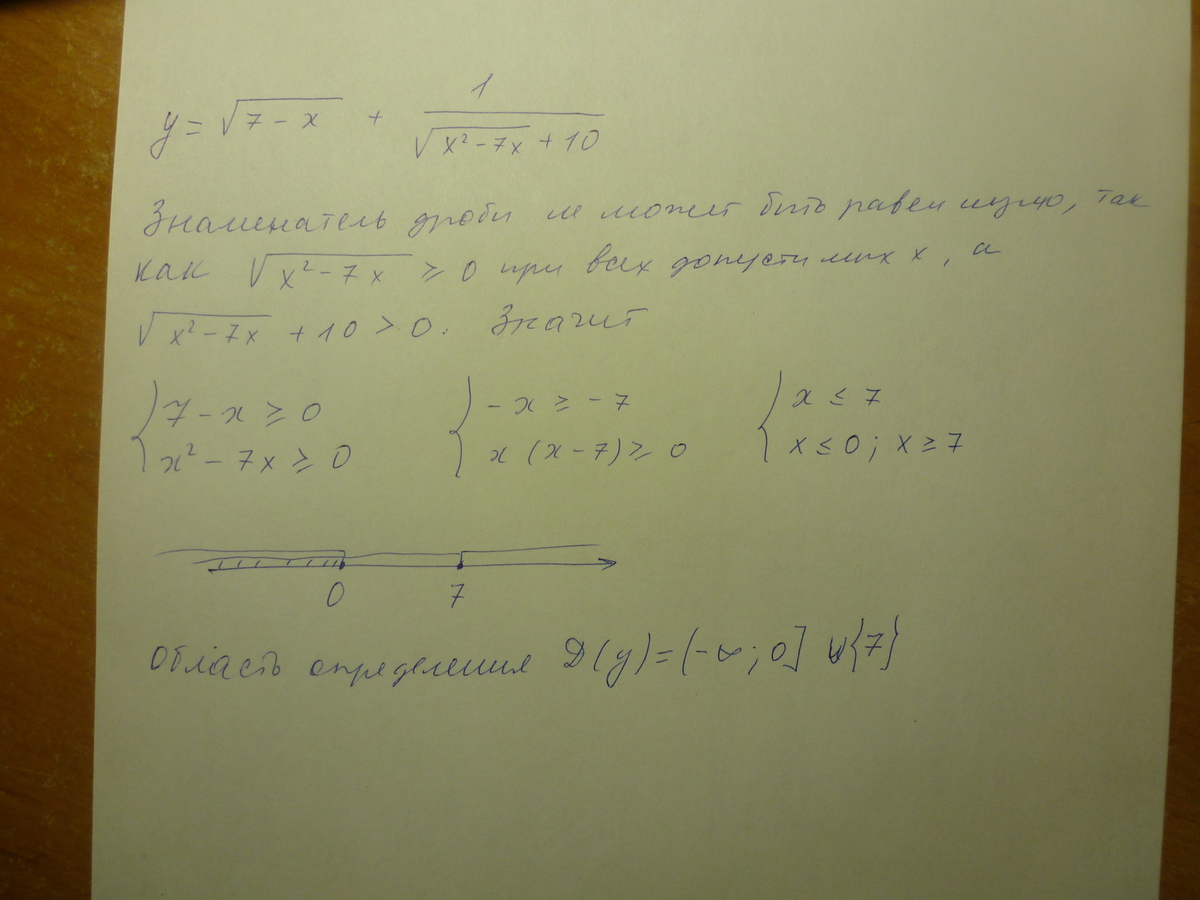 y = √(7 - x) + 1/(√(x² - 7x) + 10)
Знаменатель дроби не может быть равен нулю, так
как √(x² - 7x) ≥ 0 при всех допустимых x, а
√(x² - 7x) + 10 > 0. Значит
{ 7 - x ≥ 0 { - x ≥ - 7 { x ≤ 7
x² - 7x ≥ 0 x (x - 7) ≥ 0 x ≤ 0; x ≥ 7
0 7
Область определения D(y) = (-∞; 0] ∪ {7}